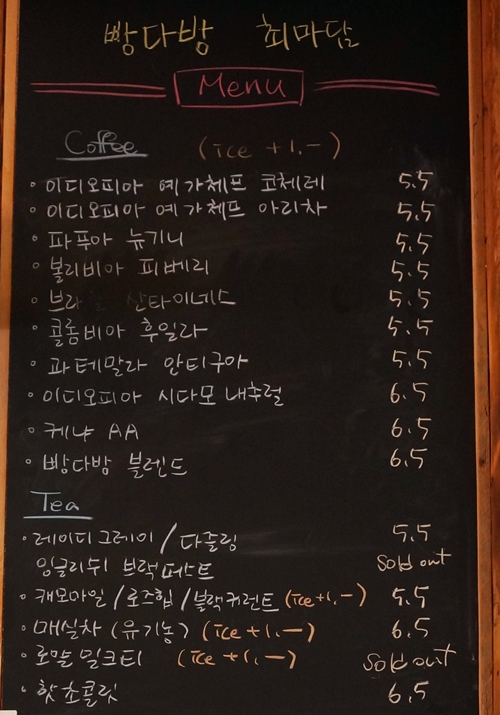 빵다방 최마담
Menu
Coffee (ice +1.-)
· 이디오피아 예가체프 코체레 5.5
· 이디오피아 예가체프 아리차 5.5
· 파푸아 뉴기니 5.5
· 볼리비아 피베리 5.5
· 브라 산타이네스 5.5
· 콜롬비아 후일라 5.5
· 과테말라 안티구아 5.5
· 이디오피아 시다모 내츄럴 6.5
· 케냐 AA 6.5
· 빵다방 블렌드 6.5
Tea
· 레이디그레이 / 다즐링 5.5
잉글리쉬 브랙퍼스트 Sold out
· 캐모마일 / 로즈힙 / 블랙커런트 (ice +1.-) 5.5
· 매실차 (유기농) (ice +1.-) 6.5
· 로얄 밀크티 (ice +1.-) Sold out
· 핫 쵸콜릿 6.5